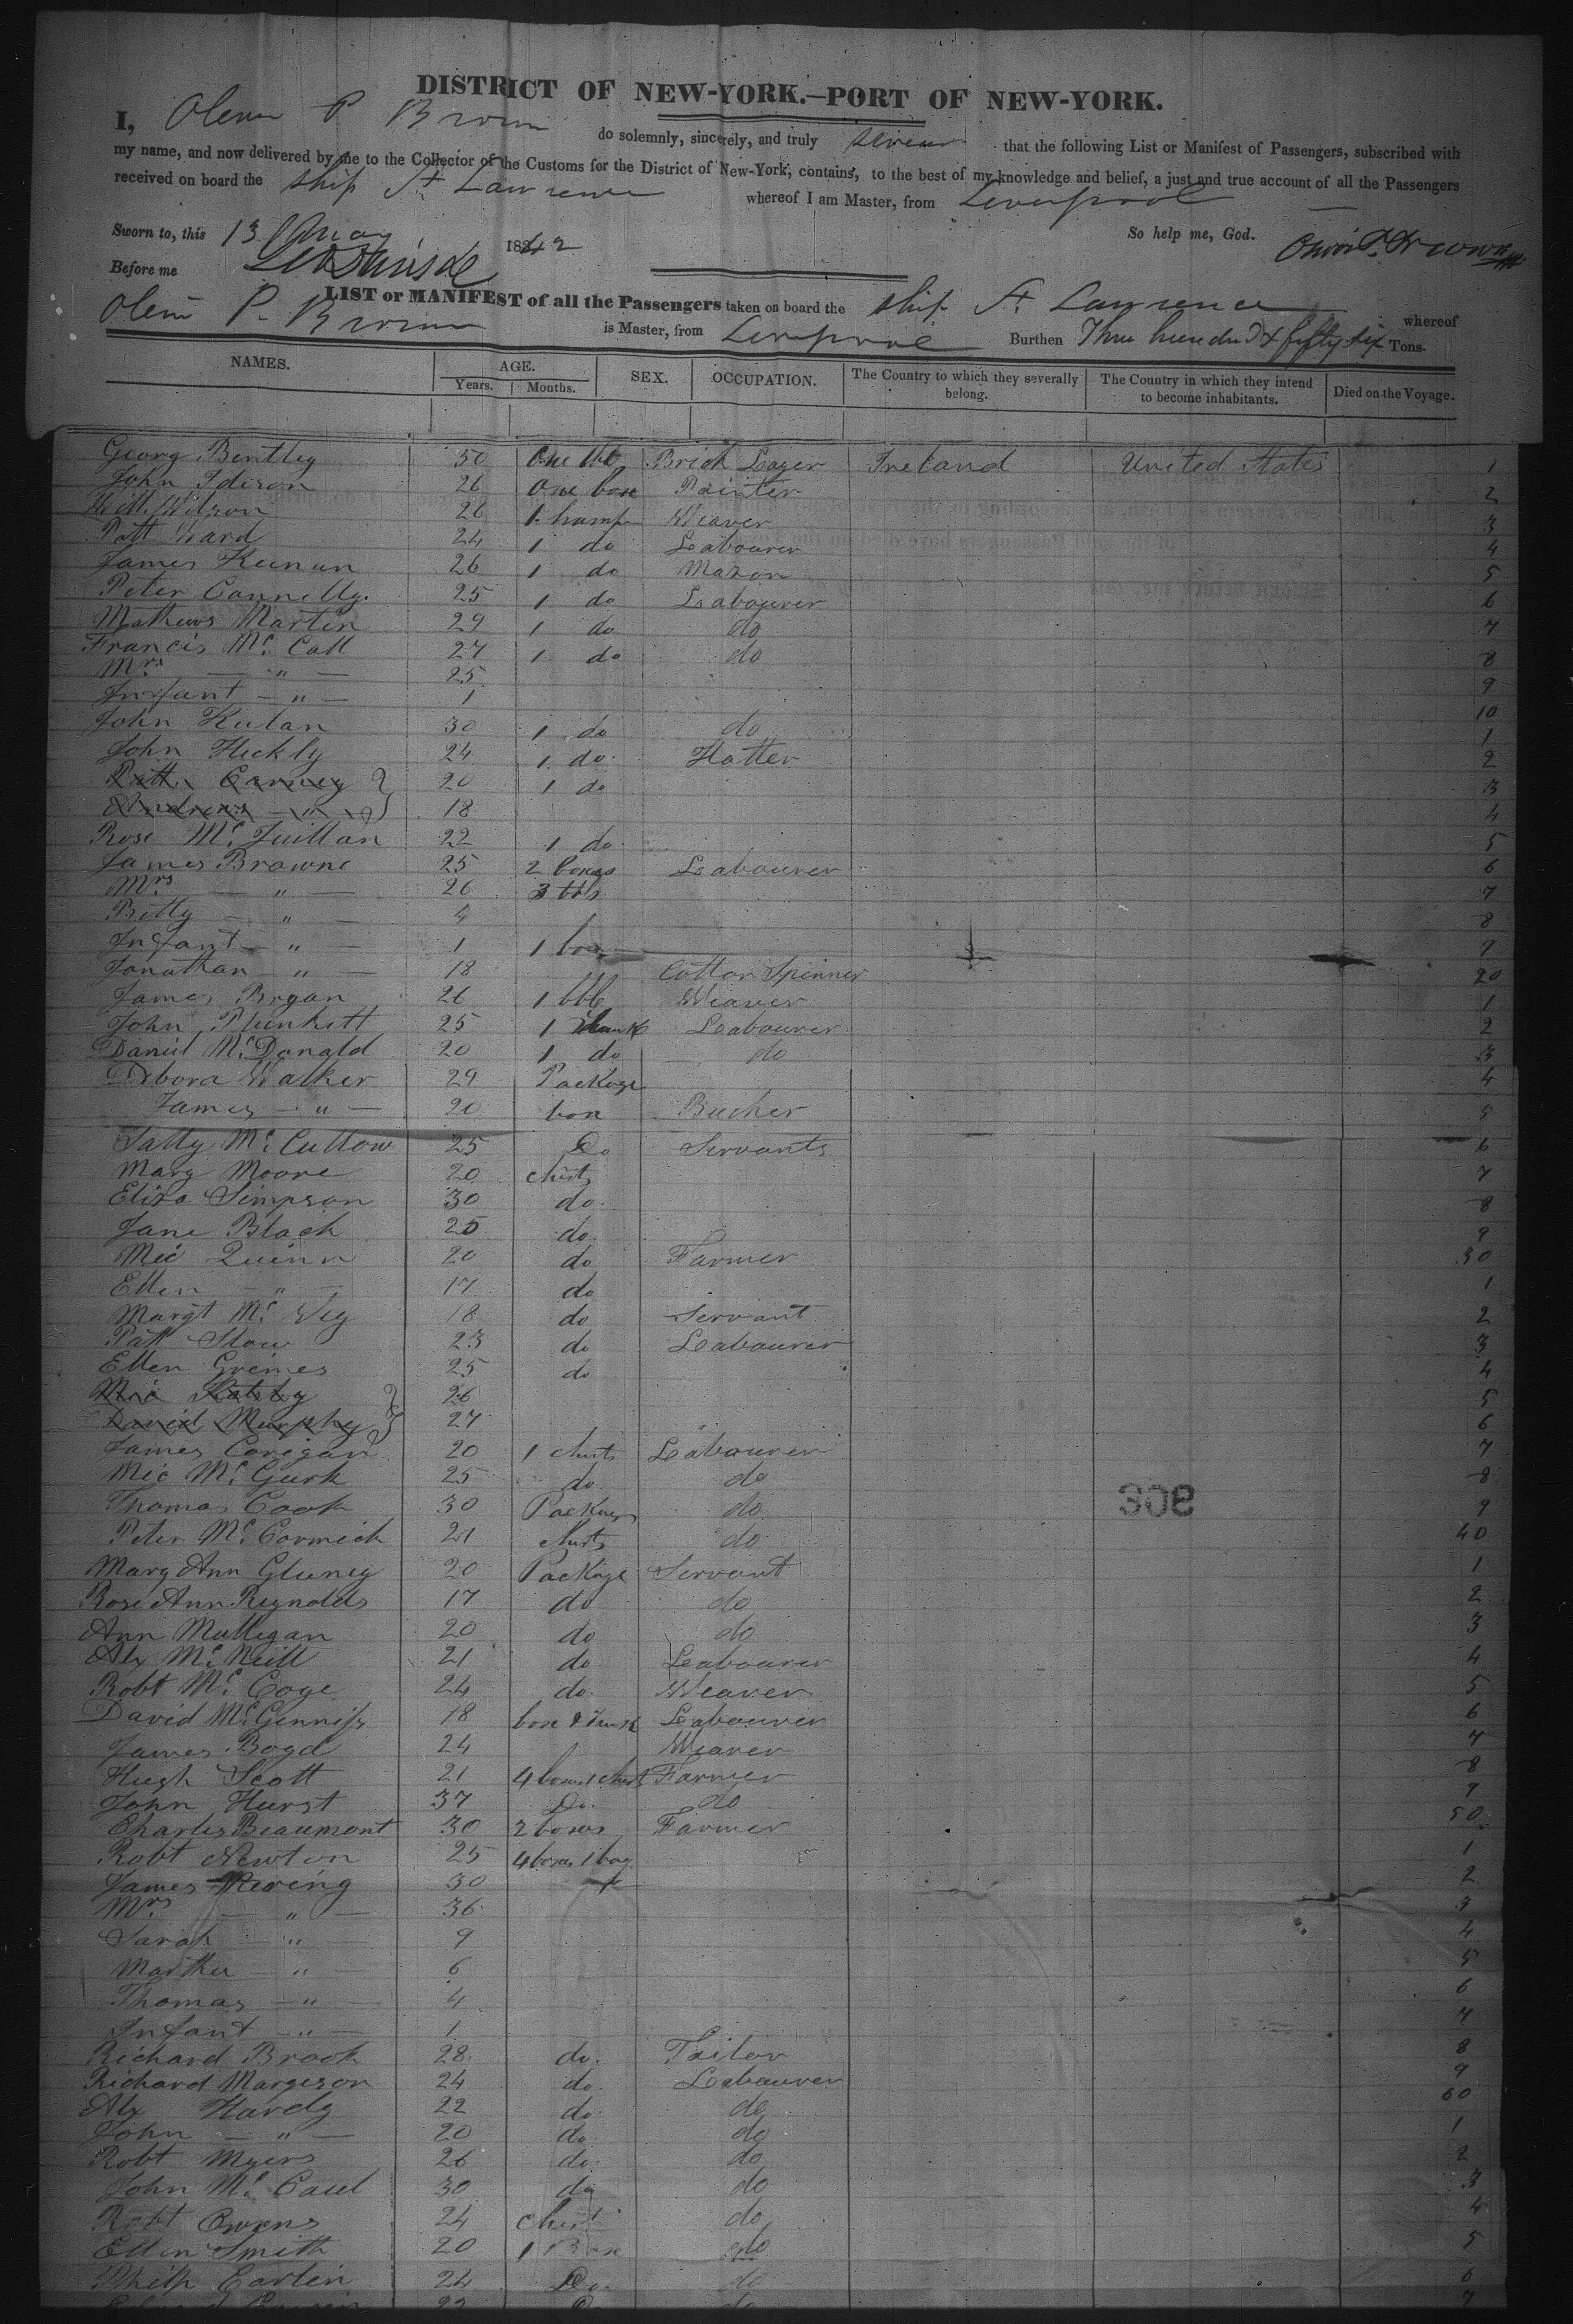 DISTRICT OF NEW-YORK.—PORT OF NEW-YORK.
I, P Brown do solemnly, sincerely, and truly swear that the following List or Manifest of Passengers, subscribed with
my name, and now delivered by me to the Collector of the Customs for the District of New-York, contains, to the best of my knowledge and belief, a just and true account of all the Passengers
received on board the Ship St. Lawrence whereof I am Master, from Liverpool
Sworn to, this 13 May 1842 So help me, God.
Before me
LIST or MANIFEST of all the Passengers taken on board the Ship St. Lawrence whereof
P. Brown is Master, from Liverpool Burthen Three hundred & fifty six Tons.
NAMES. AGE. Years. Months. SEX. OCCUPATION. The Country to which they severally belong. The Country in which they intend to become inhabitants. Died on the Voyage.
Georg Bentley 50 One bbl Brick Layer Ireland United States 1
John Idison 26 One box Painter 2
Will. Wilson 26 1 hamp Weaver 3
Patt Ward 24 1 do Leabourer 4
James Keenan 26 1 do Mason 5
Peter Connelly. 25 1 do Leabourer 6
Mathews Martin 29 1 do do 7
Francis Mc. Call 27 1 do do 8
Mrs. — " — 25 9
Infant — " — 1 10
John Kulan 30 1 do do 1
John Heckly 24 1 do Hatter 2
Patt. Carney 20 1 do 3
Andrew — " — 18 4
Rose Mc. Quillan 22 1 do 5
James Browne 25 2 boxes Leabourer 6
Mrs. — " — 26 3 bbls 7
Betty — " — 4 8
Infant — " — 1 1 box 9
Jonathan — " — 18 Cotton Spinner 20
James Bryan 26 1 bbl Weaver 1
John Plunkett 25 1 Trunk Leabourer 2
Daniel Mc. Donald 20 1 do do 3
Debora Walker 29 Package 4
James — " — 20 box Bucher 5
Sally Mc. Cullow 25 Do Servants 6
Mary Moore 20 chists 7
Eliza Simpson 30 do 8
Jane Black 25 do 9
Mic Quinn 20 do Farmer 30
Ellen — " — 17 do 1
Margt Mc. Vey 18 do Servant 2
Patt Slow 23 do Leabourer 3
Ellen Grimes 25 do 4
Mic 26 5
David Murphy 27 6
James Corigan 20 1 chists Leabourer 7
Mic Mc. Gurk 25 do do 8
Thomas Cook 30 Packages do 9
Peter Mc. Cormick 21 chists do 40
Mary Ann Gluney 20 Package Servant 1
Rose Ann Reynolds 17 do do 2
Ann Mulligan 20 do do 3
Alx Mc. Neill 21 do Leabourer 4
Robt Mc. Coye 24 do Weaver 5
David Mc. Genniss 18 box & Trunk Leabourer 6
James Boyd 24 Weaver 7
Hugh Scott 21 4 boxes 1 chist Farmer 8
John Hurst 37 Do. do 9
Charles Beaumont 30 2 boxes Farmer 50
Robt Newton 25 4 boxes 1 bag 1
James 30 2
Mrs. — " — 36 3
Sarah — " — 9 4
Martha — " — 6 5
Thomas — " — 4 6
Infant — " — 1 7
Richard Brook 28 do. Tailor 8
Richard Margeson 24 do Leabourer 9
Alx Hardy 22 do do 60
John — " — 20 do do 1
Robt Myers 26 do do 2
John Mc. Caul 30 do do 3
Robt Owens 24 chist do 4
Ellen Smith 20 1 Box do 5
Philip Earlin 24 Do. do 6
22 do 7